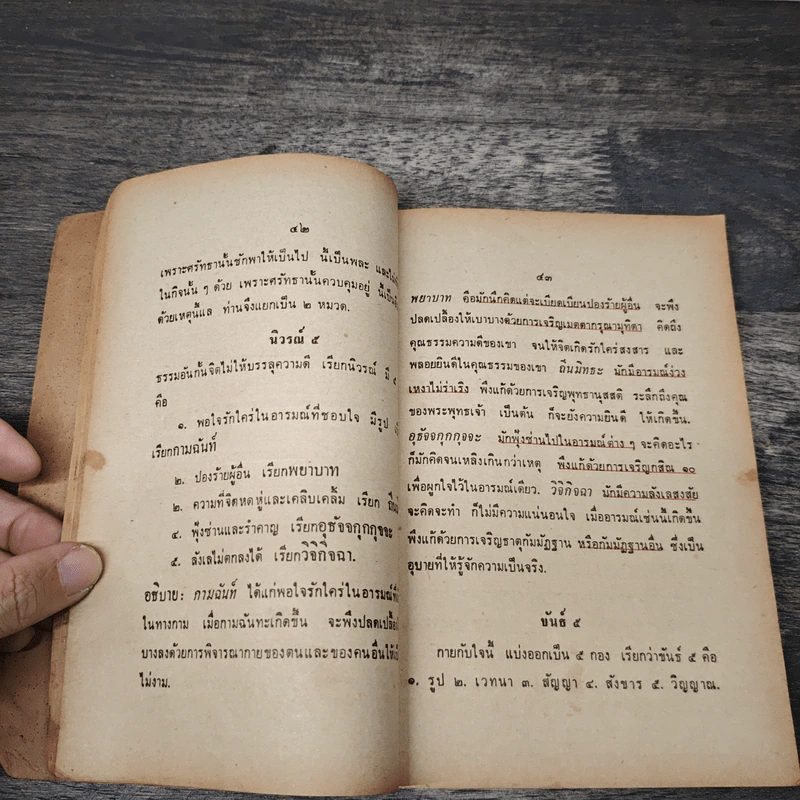 ๔๒
เพราะศรัทธานั้นชักพาให้เป็นไป นี้เป็นพละ และ
ในกิจนั้น ๆ ด้วย เพราะศรัทธานั้นควบคุมอยู่
ด้วยเหตุนี้แล ท่านจึงแยกเป็น ๒ หมวด.
นิวรณ์ ๕
ธรรมอันกั้นจิตไม่ให้บรรลุความดี เรียกนิวรณ์ มี ๕
คือ
๑. พอใจรักใคร่ในอารมณ์ที่ชอบใจ มีรูป
เรียกกามฉันท์
๒. ปองร้ายผู้อื่น เรียกพยาบาท
๓. ความที่จิตหดหู่และเคลิบเคลิ้ม เรียก
๔. ฟุ้งซ่านและรำคาญ เรียกอุธัจจกุกกุจจะ
๕. ลังเลไม่ตกลงได้ เรียกวิจิกิจฉา.
อธิบาย: กามฉันท์ ได้แก่พอใจรักใคร่ในอารมณ์
ในทางกาม เมื่อกามฉันทะเกิดขึ้น จะพึงปลดเปลื้อง
บางลงด้วยการพิจารณากายของตนและของคนอื่นให้
ไม่งาม.
๔๓
พยาบาท คือมักนึกคิดแต่จะเบียดเบียนปองร้ายผู้อื่น จะพึง
ปลดเปลื้องให้เบาบางด้วยการเจริญเมตตากรุณามุทิตา คิดถึง
คุณธรรมความดีของเขา จนให้จิตเกิดรักใคร่สงสาร และ
พลอยยินดีในคุณธรรมของเขา ถีนมิทธะ มักมีอารมณ์ง่วง
เหงาไม่ร่าเริง พึงแก้ด้วยการเจริญพุทธานุสสติ ระลึกถึงคุณ
ของพระพุทธเจ้า เป็นต้น ก็จะยังความยินดี ให้เกิดขึ้น.
อุธัจจกุกกุจจะ มักฟุ้งซ่านไปในอารมณ์ต่าง ๆ จะคิดอะไร
ก็มักคิดจนเหลิงเกินกว่าเหตุ พึงแก้ด้วยการเจริญกสิณ ๑๐
เพื่อผูกใจไว้ในอารมณ์เดียว. วิจิกิจฉา มักมีความลังเลสงสัย
จะคิดจะทำ ก็ไม่มีความแน่นอนใจ เมื่ออารมณ์เช่นนี้เกิดขึ้น
พึงแก้ด้วยการเจริญธาตุกัมมัฏฐาน หรือกัมมัฏฐานอื่น ซึ่งเป็น
อุบายที่ให้รู้จักความเป็นจริง.
ขันธ์ ๕
กายกับใจนี้ แบ่งออกเป็น ๕ กอง เรียกว่าขันธ์ ๕ คือ
๑. รูป ๒. เวทนา ๓. สัญญา ๔. สังขาร ๕. วิญญาณ.